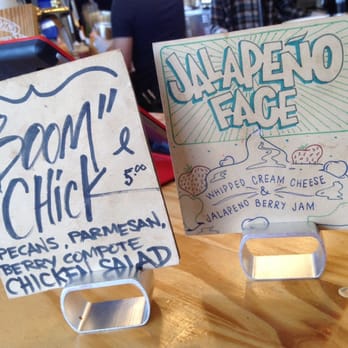 BOOM"
CHICK
5.00
PECANS, PARMESAN,
BERRY COMPOTE
CHICKEN SALAD
JALAPEÑO
FACE
WHIPPED CREAM CHEESE
&
JALAPENO BERRY JAM